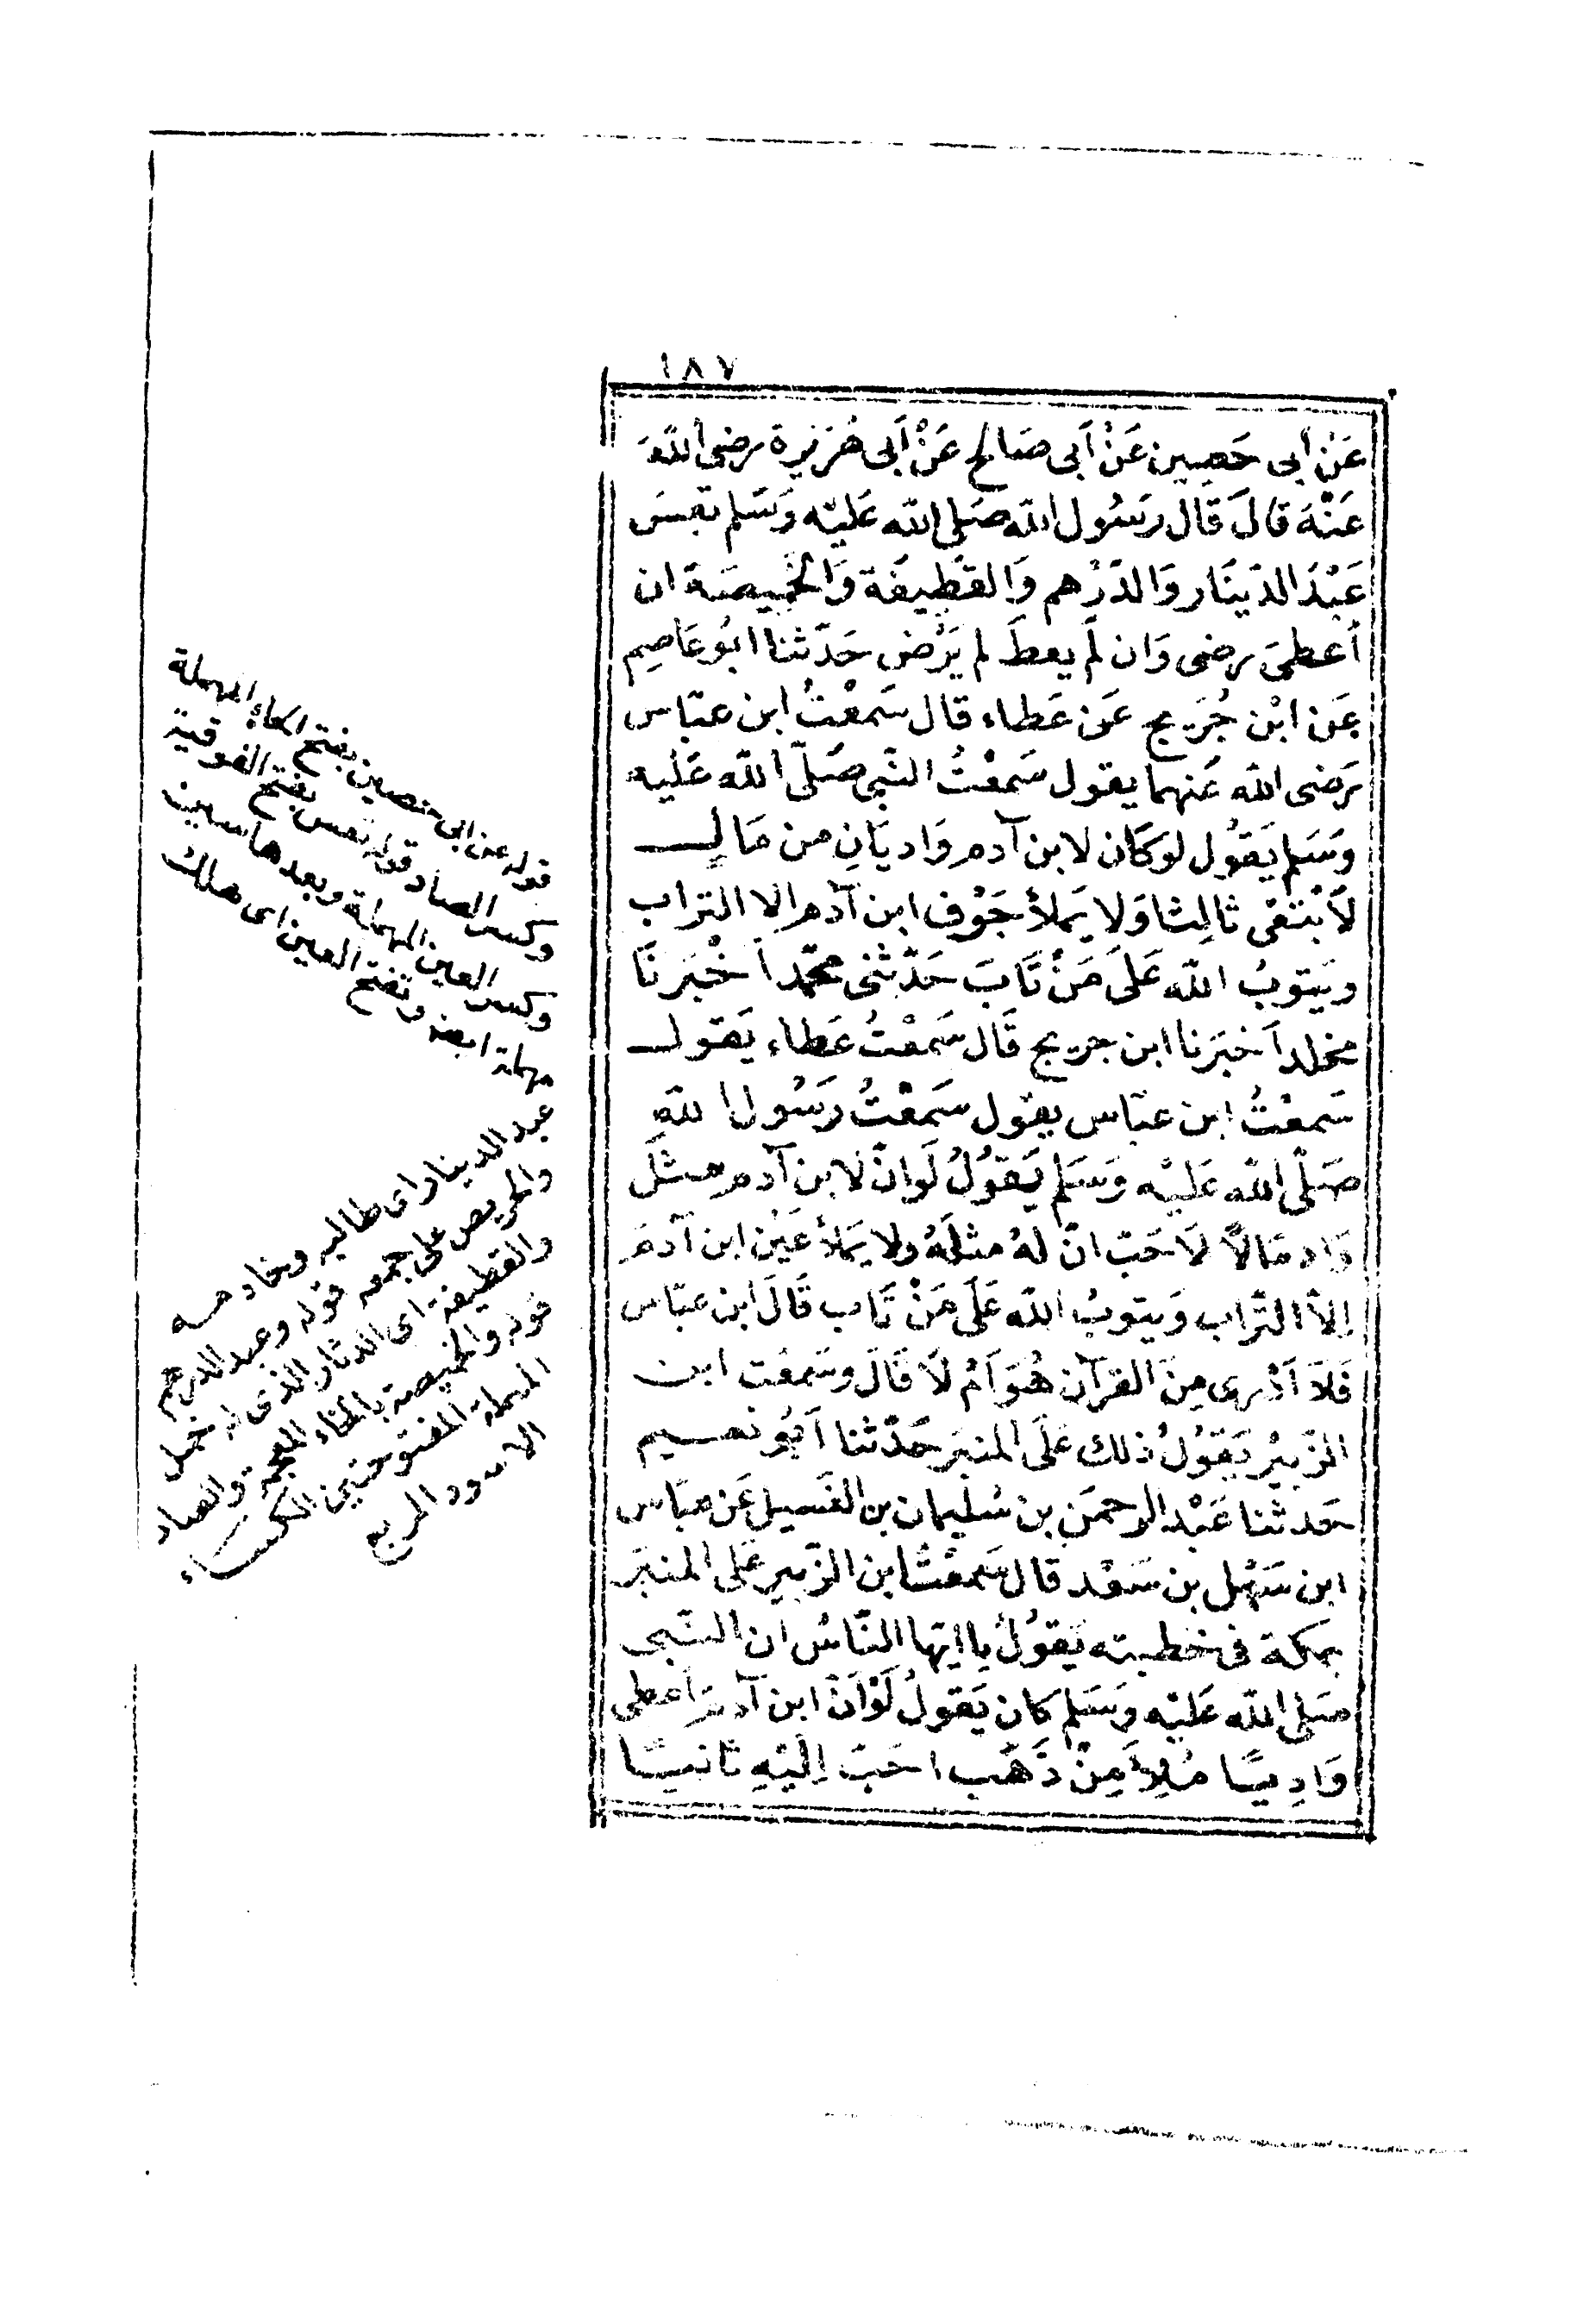 ١٨٧
عَنْ أبى حَصِين عَنْ أبى صَالح عَنْ أبى هُرَيرة رضى اللهَ
عَنْهَ قالَ قال رسُول الله صَلى الله عَليْه وَسَلم تعِسَ
عَبْدَ الدّينَار وَالدّرْهم وَالقطِيفَة وَالخَميصَة ان
أعطىَ رضى وَان لَم يعطَ لم يَرْض حَدّثنا ابُو عَاصِم
عَن ابْن جُرَيج عَن عَطاء قال سَمعْتُ ابن عبّاس
رَضى الله عَنهما يقول سَمعْتُ النّبى صَلّى الله عَليه
وَسَلم يَقوُل لوكَان لابن آدم وَاديَانِ من مَال
لاَبْتغى ثالِثا وَلا يَملأ جَوْف ابن آدم الا التراب
ويَتوبُ الله عَلَى مَنْ تَابَ حَدّثنى محمّد أخْبَرنَا
مخلد أخبَرنا ابن جريج قَال سَمعْتُ عَطاء يَقول
سَمعْتُ ابن عبّاس يقول سَمعْتُ رَسُول الله
صَلّى الله عَليْه وَسَلم يَقوُلُ لَوانّ لابن آدم مثلَ
وَاد مَالاً لاَحَبّ انّ لهُ مثلَهُ ولا يَملأ عَيْن ابن آدمَ
إلاّ التّراب وَيتوبُ الله عَلَى مَنْ تَاب قَالَ ابن عبّاس
فَلاَ أدْرى مِنَ القرآن هُوَ أمْ لاَ قَالَ وسَمعْت ابن
الزّبيْر يَقوُلُ ذلك عَلَى المنبَر حَدّثنا أبُو نعيم
حَدثنا عَبْد الرحمَن بن سُليمان بن الغَسيل عَن عبّاس
ابن سَهْل بن سَعْد قال سَمعْتُ ابن الزّبير عَلى المنبَر
بمَكة فى خطبته يَقوُلُ يا ايّها النّاسُ ان النّبى
صَلى الله عَليْه وَسَلم كان يَقولُ لَوْ أنّ ابن آدمَ أعطى
وَادِيًا مُلِأَ مِنْ ذَهَب احَبّ إليْهِ ثَانيًا
قوله عن ابى حصين بفتح الحاء المهملة
وكسر الصاد قوله تعس بفتح الفوقية
وكسر العين المهملة وبعدها سين
مهملة ايضا وتفتح العين اى هلك
عبد الدينار اى طالبه وخادمه
والحريص على جمعه قوله وعبد الدرهم
والقطيفة اى الدثار الذى له خمل
قوله والخميصة بالخاء المعجمة والصاد
المهملة المفتوحتين الكساء
الاسود المربع